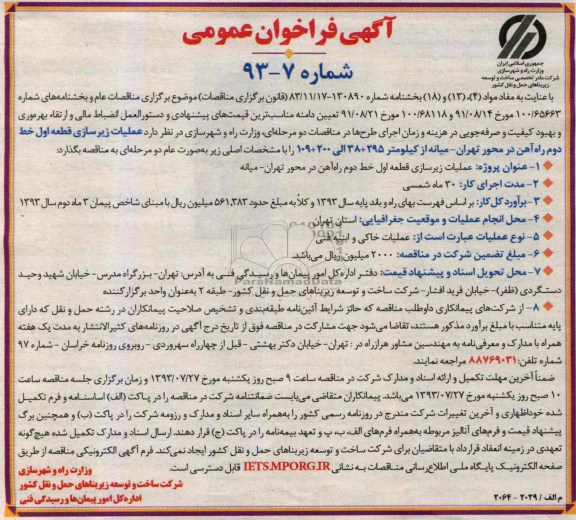 آگهی فراخوان عمومی
شماره ۷-۹۳
جمهوری اسلامی ایران
وزارت راه و شهرسازی
شرکت مادر تخصصی ساخت و توسعه
زیربناهای حمل و نقل کشور
با عنایت به مفاد مواد (۴)، (۱۳) و (۱۸) بخشنامه شماره ۱۳۰۸۹۰-۸۳/۱۱/۱۷ (قانون برگزاری مناقصات) موضوع برگزاری مناقصات عام و بخشنامه‌های شماره
۱۰۰/۶۵۶۶۳ مورخ ۹۱/۰۸/۱۴ و ۱۰۰/۶۸۱۱۸ مورخ ۹۱/۰۸/۲۱ تعیین دامنه مناسب‌ترین قیمت‌های پیشنهادی و دستورالعمل انضباط مالی و ارتقاء بهره‌وری
و بهبود کیفیت و صرفه‌جویی در هزینه و زمان اجرای طرح‌ها در مناقصات دو مرحله‌ای، وزارت راه و شهرسازی در نظر دارد عملیات زیرسازی قطعه اول خط
دوم راه‌آهن در محور تهران- میانه از کیلومتر ۲۹۵+۳۸ الی ۲۰۰+۱۰۹ را با مشخصات اصلی زیر به‌صورت عام دو مرحله‌ای به مناقصه بگذارد:
۱- عنوان پروژه: عملیات زیرسازی قطعه اول خط دوم راه‌آهن در محور تهران- میانه
۲- مدت اجرای کار: ۳۰ ماه شمسی
۳- برآورد کل کار: بر اساس فهرست بهای راه و باند پایه سال ۱۳۹۳ و کلاً به مبلغ حدود ۵۶۱,۳۸۳ میلیون ریال با مبنای شاخص پیمان ۳ ماه دوم سال ۱۳۹۳
۴- محل انجام عملیات و موقعیت جغرافیایی: استان تهران
۵- نوع عملیات عبارت است از: عملیات خاکی و ابنیه فنی
۶- مبلغ تضمین شرکت در مناقصه: ۲۰۰۰ میلیون ریال می‌باشد.
۷- محل تحویل اسناد و پیشنهاد قیمت: دفتر اداره کل امور پیمان‌ها و رسیدگی فنی به آدرس: تهران- بزرگراه مدرس- خیابان شهید وحید
دستگردی (ظفر)- خیابان فرید افشار- شرکت ساخت و توسعه زیربناهای حمل و نقل کشور- طبقه ۲ به‌عنوان واحد برگزارکننده
۸- از شرکت‌های پیمانکاری داوطلب مناقصه که حائز شرایط آئین‌نامه طبقه‌بندی و تشخیص صلاحیت پیمانکاران در رشته حمل و نقل که دارای
پایه متناسب با مبلغ برآورد مذکور هستند، تقاضا می‌شود جهت مشارکت در مناقصه فوق از تاریخ درج آگهی در روزنامه‌های کثیرالانتشار به مدت یک هفته
همراه با مدارک و معرفی‌نامه به مهندسین مشاور هرازراه در : تهران- خیابان دکتر بهشتی - قبل از چهارراه سهروردی - روبروی روزنامه خراسان - شماره ۹۷
شماره تلفن: ۸۸۷۶۹۰۳۱ مراجعه نمایند.
ضمناً آخرین مهلت تکمیل و ارائه اسناد و مدارک شرکت در مناقصه ساعت ۹ صبح روز یکشنبه مورخ ۱۳۹۳/۰۷/۲۷ و زمان برگزاری جلسه مناقصه ساعت
۱۰ صبح روز یکشنبه مورخ ۱۳۹۳/۰۷/۲۷ می‌باشد. پیمانکاران متقاضی می‌بایست ضمانتنامه شرکت در مناقصه را در پاکت (الف) اساسنامه و فرم تکمیل
شده خوداظهاری و آخرین تغییرات شرکت مندرج در روزنامه رسمی کشور را به‌همراه سایر اسناد و مدارک و رزومه شرکت را در پاکت (ب) و همچنین برگ
پیشنهاد قیمت و فرم‌های آنالیز مربوطه به‌همراه فرم‌های الف، ب، پ و تعهد بیمه‌نامه را در پاکت (ج) قرار دهند. ارسال اسناد و مدارک تکمیل شده هیچ‌گونه
تعهدی در زمینه انعقاد قرارداد با متقاضیان برای شرکت ساخت و توسعه زیربناهای حمل و نقل کشور ایجاد نمی‌کند. فرم آگهی الکترونیکی مناقصه از طریق
صفحه الکترونیک پایگاه ملی اطلاع‌رسانی مناقصات به نشانی IETS.MPORG.IR قابل دسترسی است.
وزارت راه و شهرسازی
شرکت ساخت و توسعه زیربناهای حمل و نقل کشور
اداره کل امور پیمان‌ها و رسیدگی فنی
م الف / ۲۰۲۹ - ۲۰۶۴
ParsNamadData